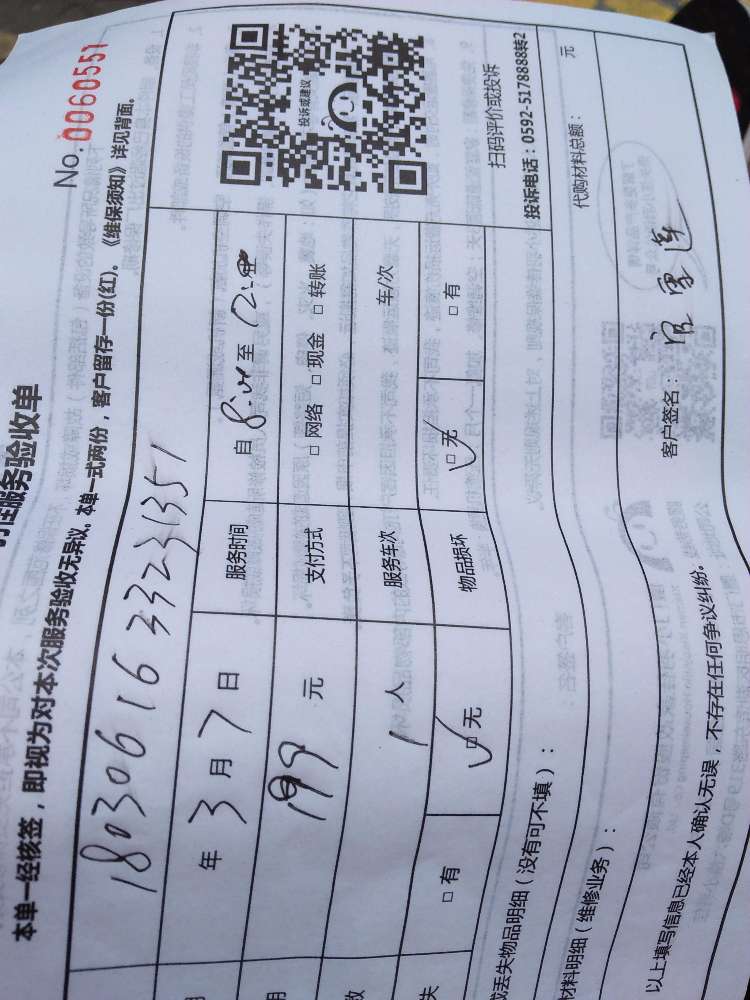 服务验收单
No: 0060551
本单一经核签，即视为对本次服务验收无异议。本单一式两份，客户留存一份(红)。《维保须知》详见背面。
18030616332231351
年 3 月 7 日 服务时间 自 8:00 至 12:00
199 元 支付方式 □ 网络 □ 现金 □ 转账
1 人 服务车次 车/次
□ 有 □ 无 物品损坏 □ 无 □ 有
投诉或建议
扫码评价或投诉
投诉电话：0592-5178888转2
或丢失物品明细（没有可不填）：
材料明细（维修业务）：
代购材料总额： 元
以上填写信息已经本人确认无误，不存在任何争议纠纷。
客户签名：